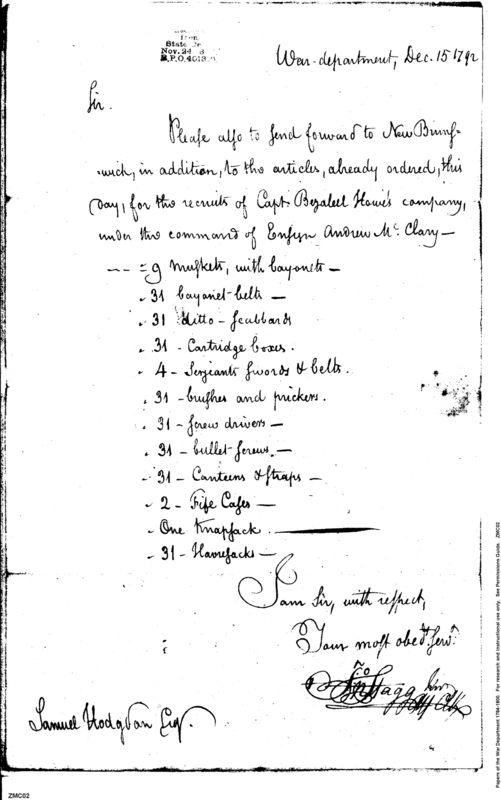 from
State
Nov. 24
War-department, Dec. 15 1792
Sir.
Please also to send forward to New Bruns-
wick, in addition, to the articles, already ordered, this
day, for the recruits of Capt. Bezaleel Howe's company,
under the command of Ensyn Andrew Mc. Clary —
9 muskets, with bayonets —
31 bayonet-belts —
31 ditto - scabbards
31 - Cartridge boxes.
4 - Serjeants swords & belts.
31 - brushes and prickers.
31 - screw drivers —
31 - bullet-screws. —
31 - Canteens & straps —
2 - Fife Cases —
One Knapsack.
31 - Haversacks —
I am Sir, with respect,
Your most obedt. Servt.
Jno Stagg Junr
Samuel Hodgdon Esqr.
Papers of the War Department 1784-1800. For research and instructional use only. See Permissions Guide. ZMC02
ZMC02